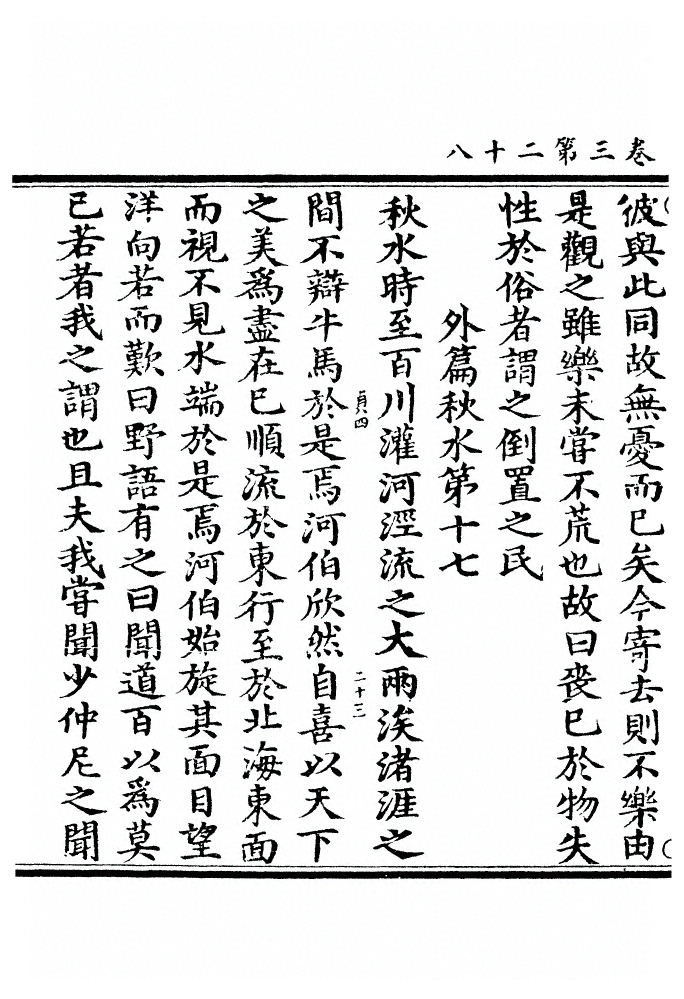 卷三第二十八
彼與此同故無憂而已矣今寄去則不樂由
是觀之雖樂未嘗不荒也故曰喪已於物失
性於俗者謂之倒置之民
外篇秋水第十七
秋水時至百川灌河涇流之大兩涘渚涯之
貞四
二十三
間不辯牛馬於是焉河伯欣然自喜以天下
之美爲盡在已順流於東行至於北海東面
而視不見水端於是焉河伯始旋其面目望
洋向若而歎曰野語有之曰聞道百以爲莫
已若者我之謂也且夫我嘗聞少仲尼之聞